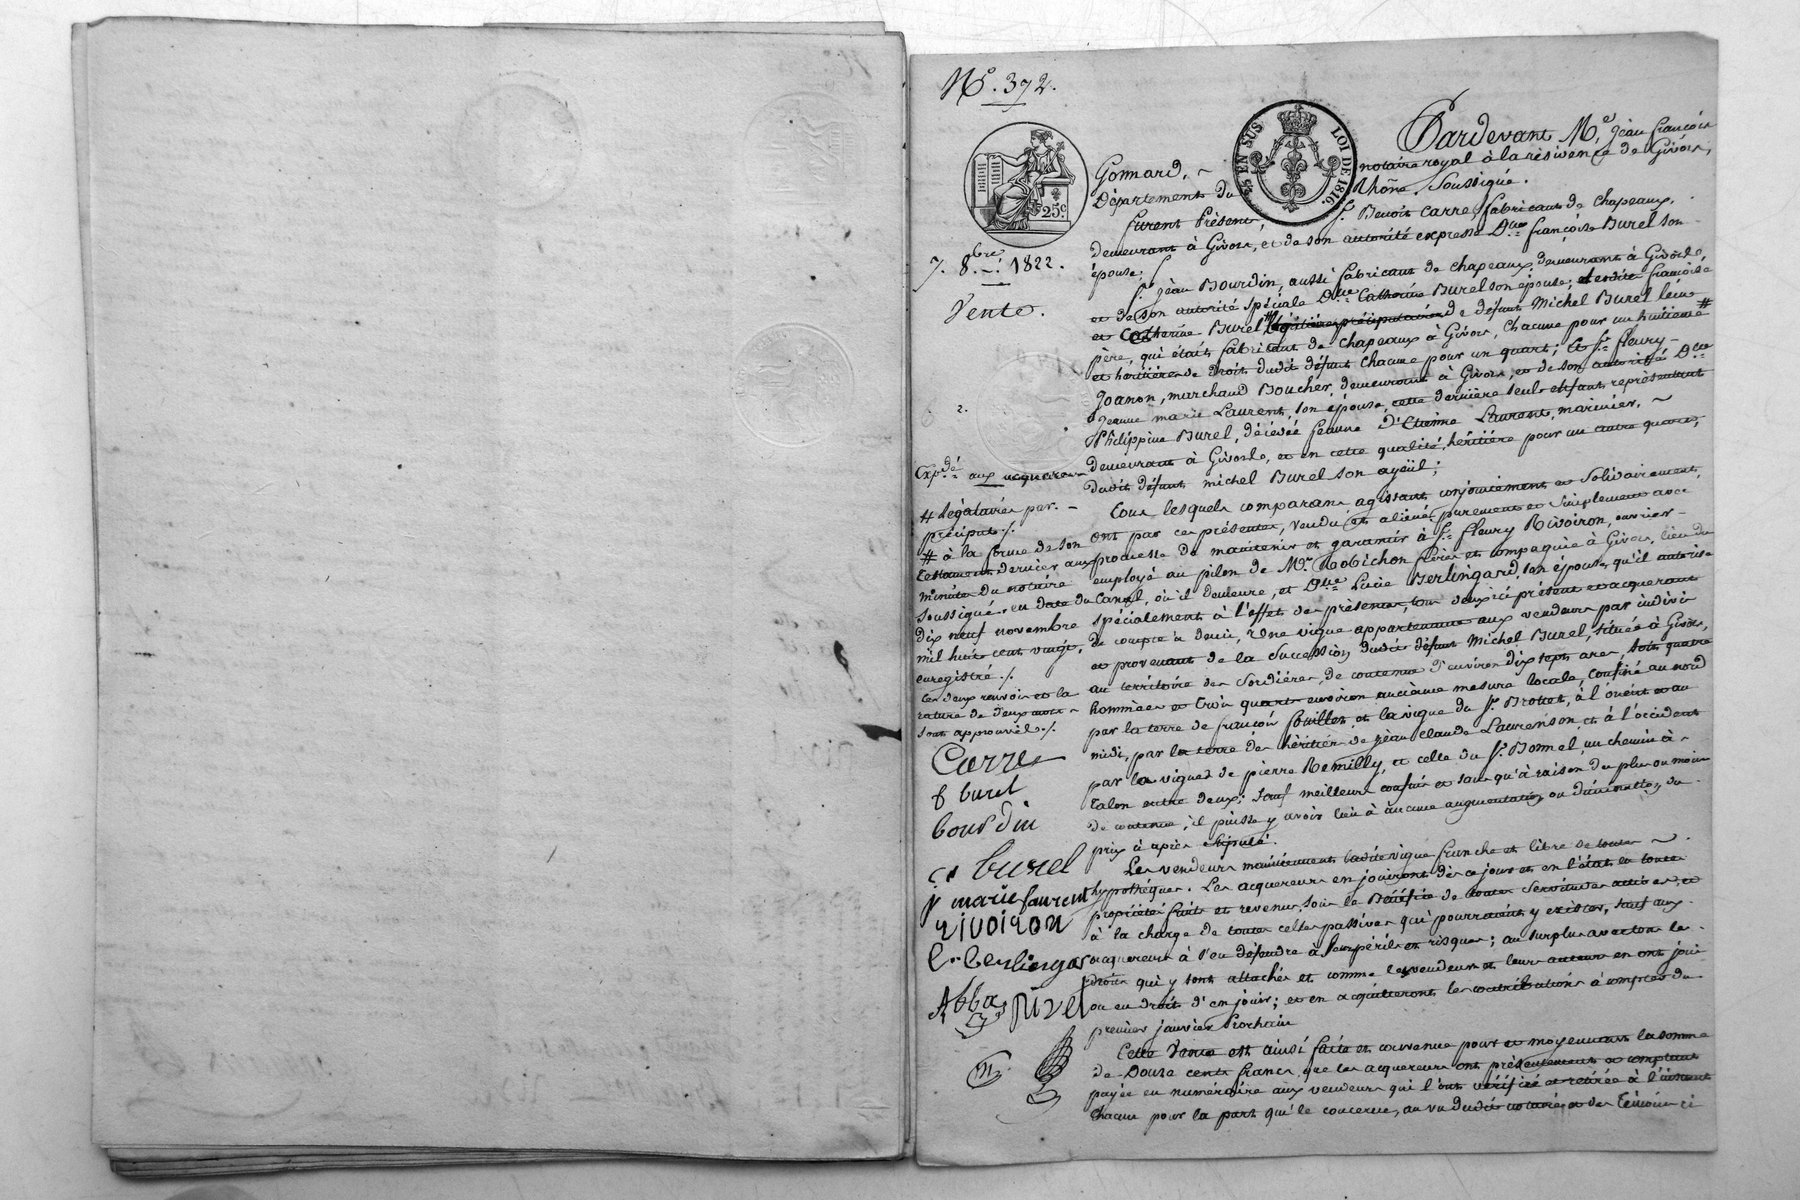 N.° 372.
25 EN SUS LOI DE 1816.
25c
7. 8.bre 1822.
Vente.
Expé.dé aux acquereurs
# Légataires par
préciput ./.
# à la forme de son
testament dernier aux
minutes du notaire
soussigné, en date du
dix neuf novembre
mil huit cent vingt,
enregistré ./.
les deux renvois et la
rature de deux mots
sont approuvés ./.
Carre
f burel
bourdin
c burel
j marie laurent
rivoiron
l. berlingard
Abba
Rivel
Pardevant M.e Jean françois
Gonnard, ~ notaire royal à la résidence de Givors,
Département du Rhône. Soussigné.
furent Présents, S.r Benoit Carre, fabricant de chapeaux,
demeurant à Givors, et de son autorité expresse D.me françoise Burel son
épouse;
S.r Jean Bourdin, aussi fabricant de chapeaux, demeurant à Givors,
et de son autorité spéciale D.me Catherine Burel son épouse; françoise
et Catherine Burel # de défunt Michel Burel leur
père, qui était fabricant de chapeaux à Givors, chacune pour un huitieme #
et héritières de droit dudit défunt chacune pour un quart; Et S.r fleury
Goanon, marchand Boucher, demeurant à Givors, et de son autorité D.me
jeanne marie Laurent, son épouse, cette dernière seule enfant représentant
Philippine Burel, décédée femme d'Etienne Laurent, marinier, ~
demeurant à Givors, et en cette qualité, héritière pour un autre quart,
dudit défunt michel Burel son ayeül;
Tous lesquels comparans, agissant conjointement et Solidairement,
ont par ces présentes, vendu et aliéné purement et simplement avec
promesse de maintenir et garantir à S.r fleury Rivoiron, ouvrier
employé au pilon de M.rs Robichon frères et compagnie à Givors, lieu du
Canal, où il demeure, et D.me Lucie Berlingard, son épouse, qu'il autorise
spécialement à l'effet des présentes, tous deux ici présent et acquerant
de compte à demi, Une vigne appartenant aux vendeurs par indivis
et provenant de la Succession dudit défunt Michel Burel, située à Givors,
au territoire des Sordières, de contenue d'environ dix sept ares, soit quatre
hommées et trois quarts environ ancienne mesure locale, confiné au nord
par la terre de françois fouillet, et la vigne du S.r Brottet, à l'orient et au
midi, par la terre des héritiers de jean claude Laurenson, et à l'occident
par les vignes de pierre Remilly, et celle du S.r Bonnel, un chemin à
talon entre deux; Sauf meilleurs confins et sans qu'à raison du plus ou moins
de contenue, il puisse y avoir lieu à aucune augmentation ou diminution du
prix ci après stipulé.
Les vendeurs maintiennent ladite vigne franche et libre de toutes ~
hypothèques. Les acquereurs en jouiront dès ce jour et en l'état en toute
propriété fruits et revenus, sous le Bénéfice de toutes Servitudes actives, et
à la charge de toutes celles passives qui pourraient y exister, sauf aux
acquereurs à s'en défendre à leurs périls et risques; au surplus avec tous les
droits qui y sont attachés et comme les vendeurs et leurs auteurs en ont joui
ou eu droit d'en jouir; et en acquitteront les contributions à compter du
premier janvier Prochain
Cette Vente est ainsi faite et convenue pour et moyennant la somme
de Douze cents francs, que les acquereurs ont présentement et comptant
payée en numéraire aux vendeurs qui l'ont vérifiée et retirée à l'instant
chacun pour la part qui le concerne, au vu dudit notaire et des témoins ci